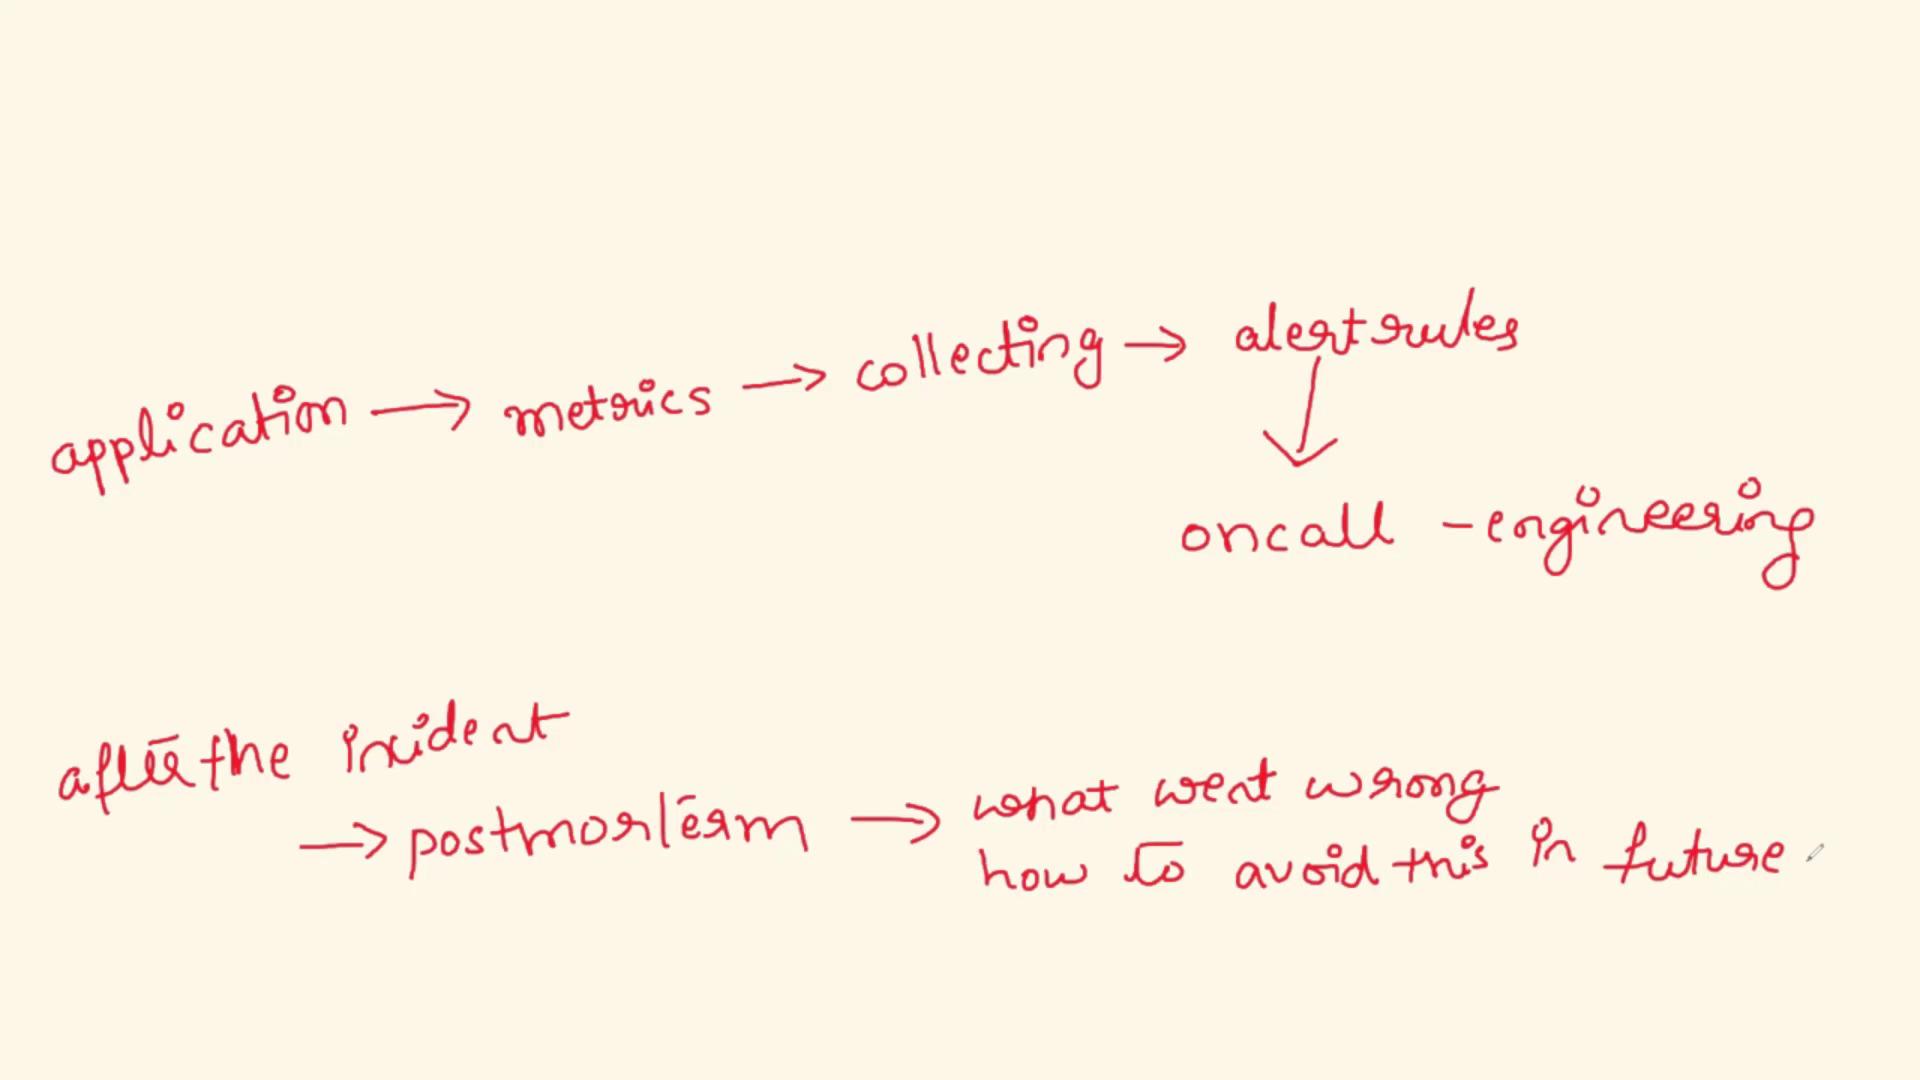 application → metrics → collecting → alert rules
oncall - engineering
after the incident
→ postmorterm → what went wrong
how to avoid this in future